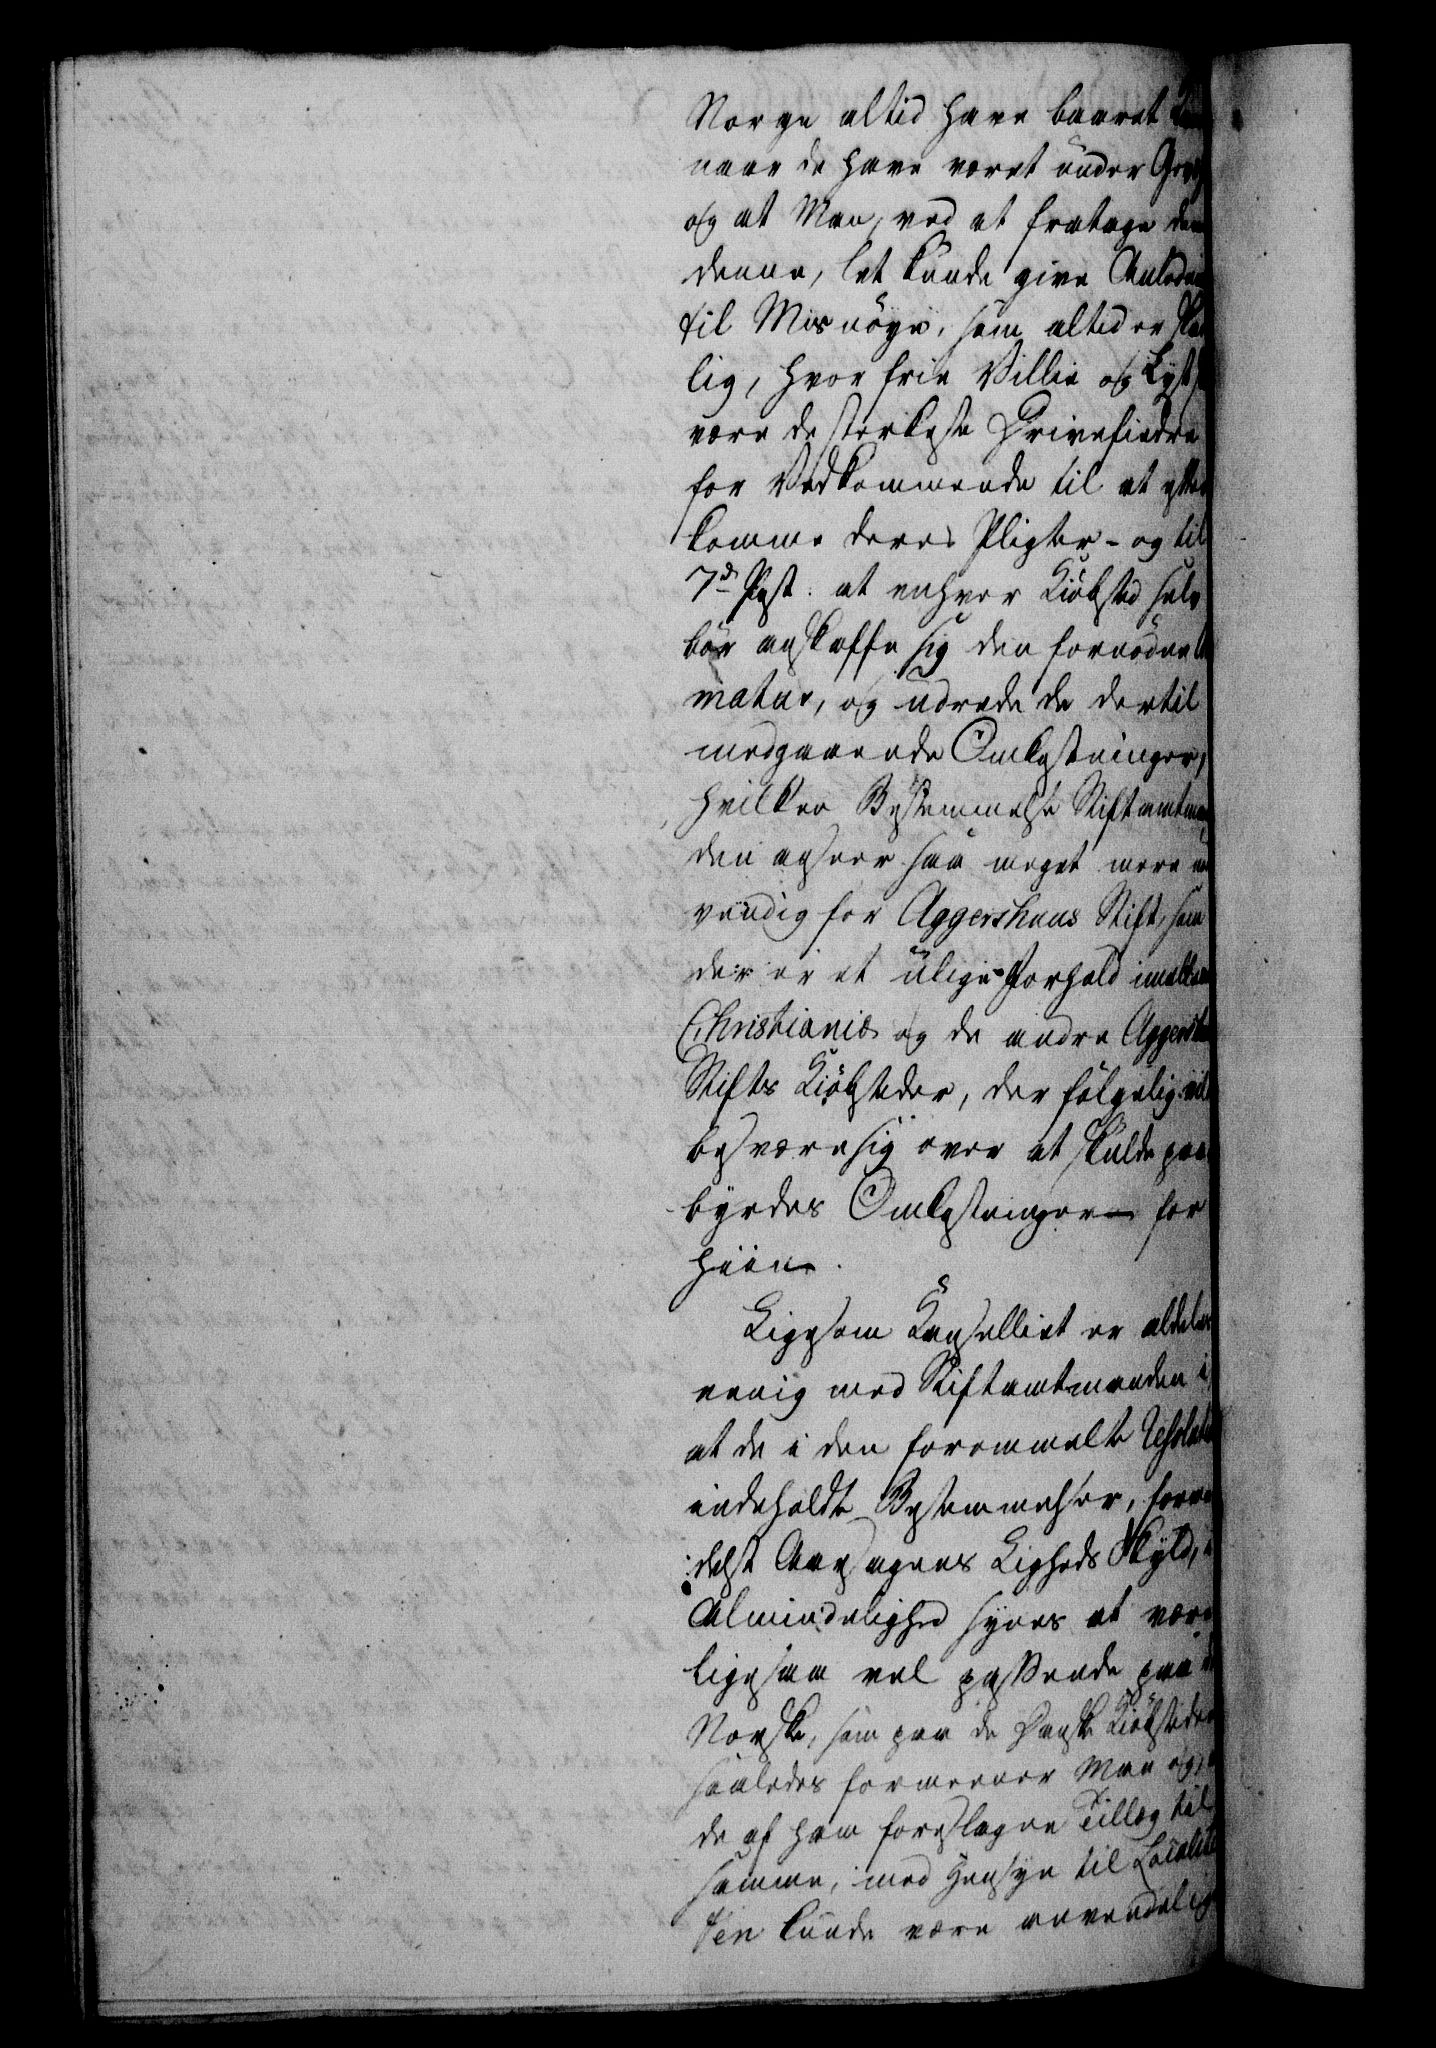 Norge altid have baaret
naar de have været under
og at Man, ved at fratage dem
denne, let kunde give Anledn
til Misnöye, som altid er
lig, hvor frie Villie og Lyst
være de sterkeste Drivefiedre
for Vedkommende til at efter
komme deres Pligter - og til
7de Post: at enhver Kiöbsted selv
bör anskaffe sig den fornödne
matur, og udrede de dertil
medgaaende Omkostninger,
hvilken Bestemmelse Stiftamtman
den anseer saa meget mere
vendig for Aggershuus Stift, som
der er et ulige Forhold imellem
Christiania og de andre Aggershu
Stifts Kiöbsteder, der fölgelig vil
besvære sig over at skulde paa
byrdes Omkostninger for
hiin.
Ligesom Kanselliet er aldeles
eenig med Stiftamtmanden i,
at de i den forommelte
indeholdte Bestemmelser, forme
delst Aarsagens Ligheds Skyld, i
Almindelighed synes at være
ligesaa vel passende paa de
Norske, som paa de Danske Kiöbsteder
saaledes formeener Man og,
de af ham foreslagne Tillæg til
samme, med Hensyn til Localite
ten kunde være anvendelig